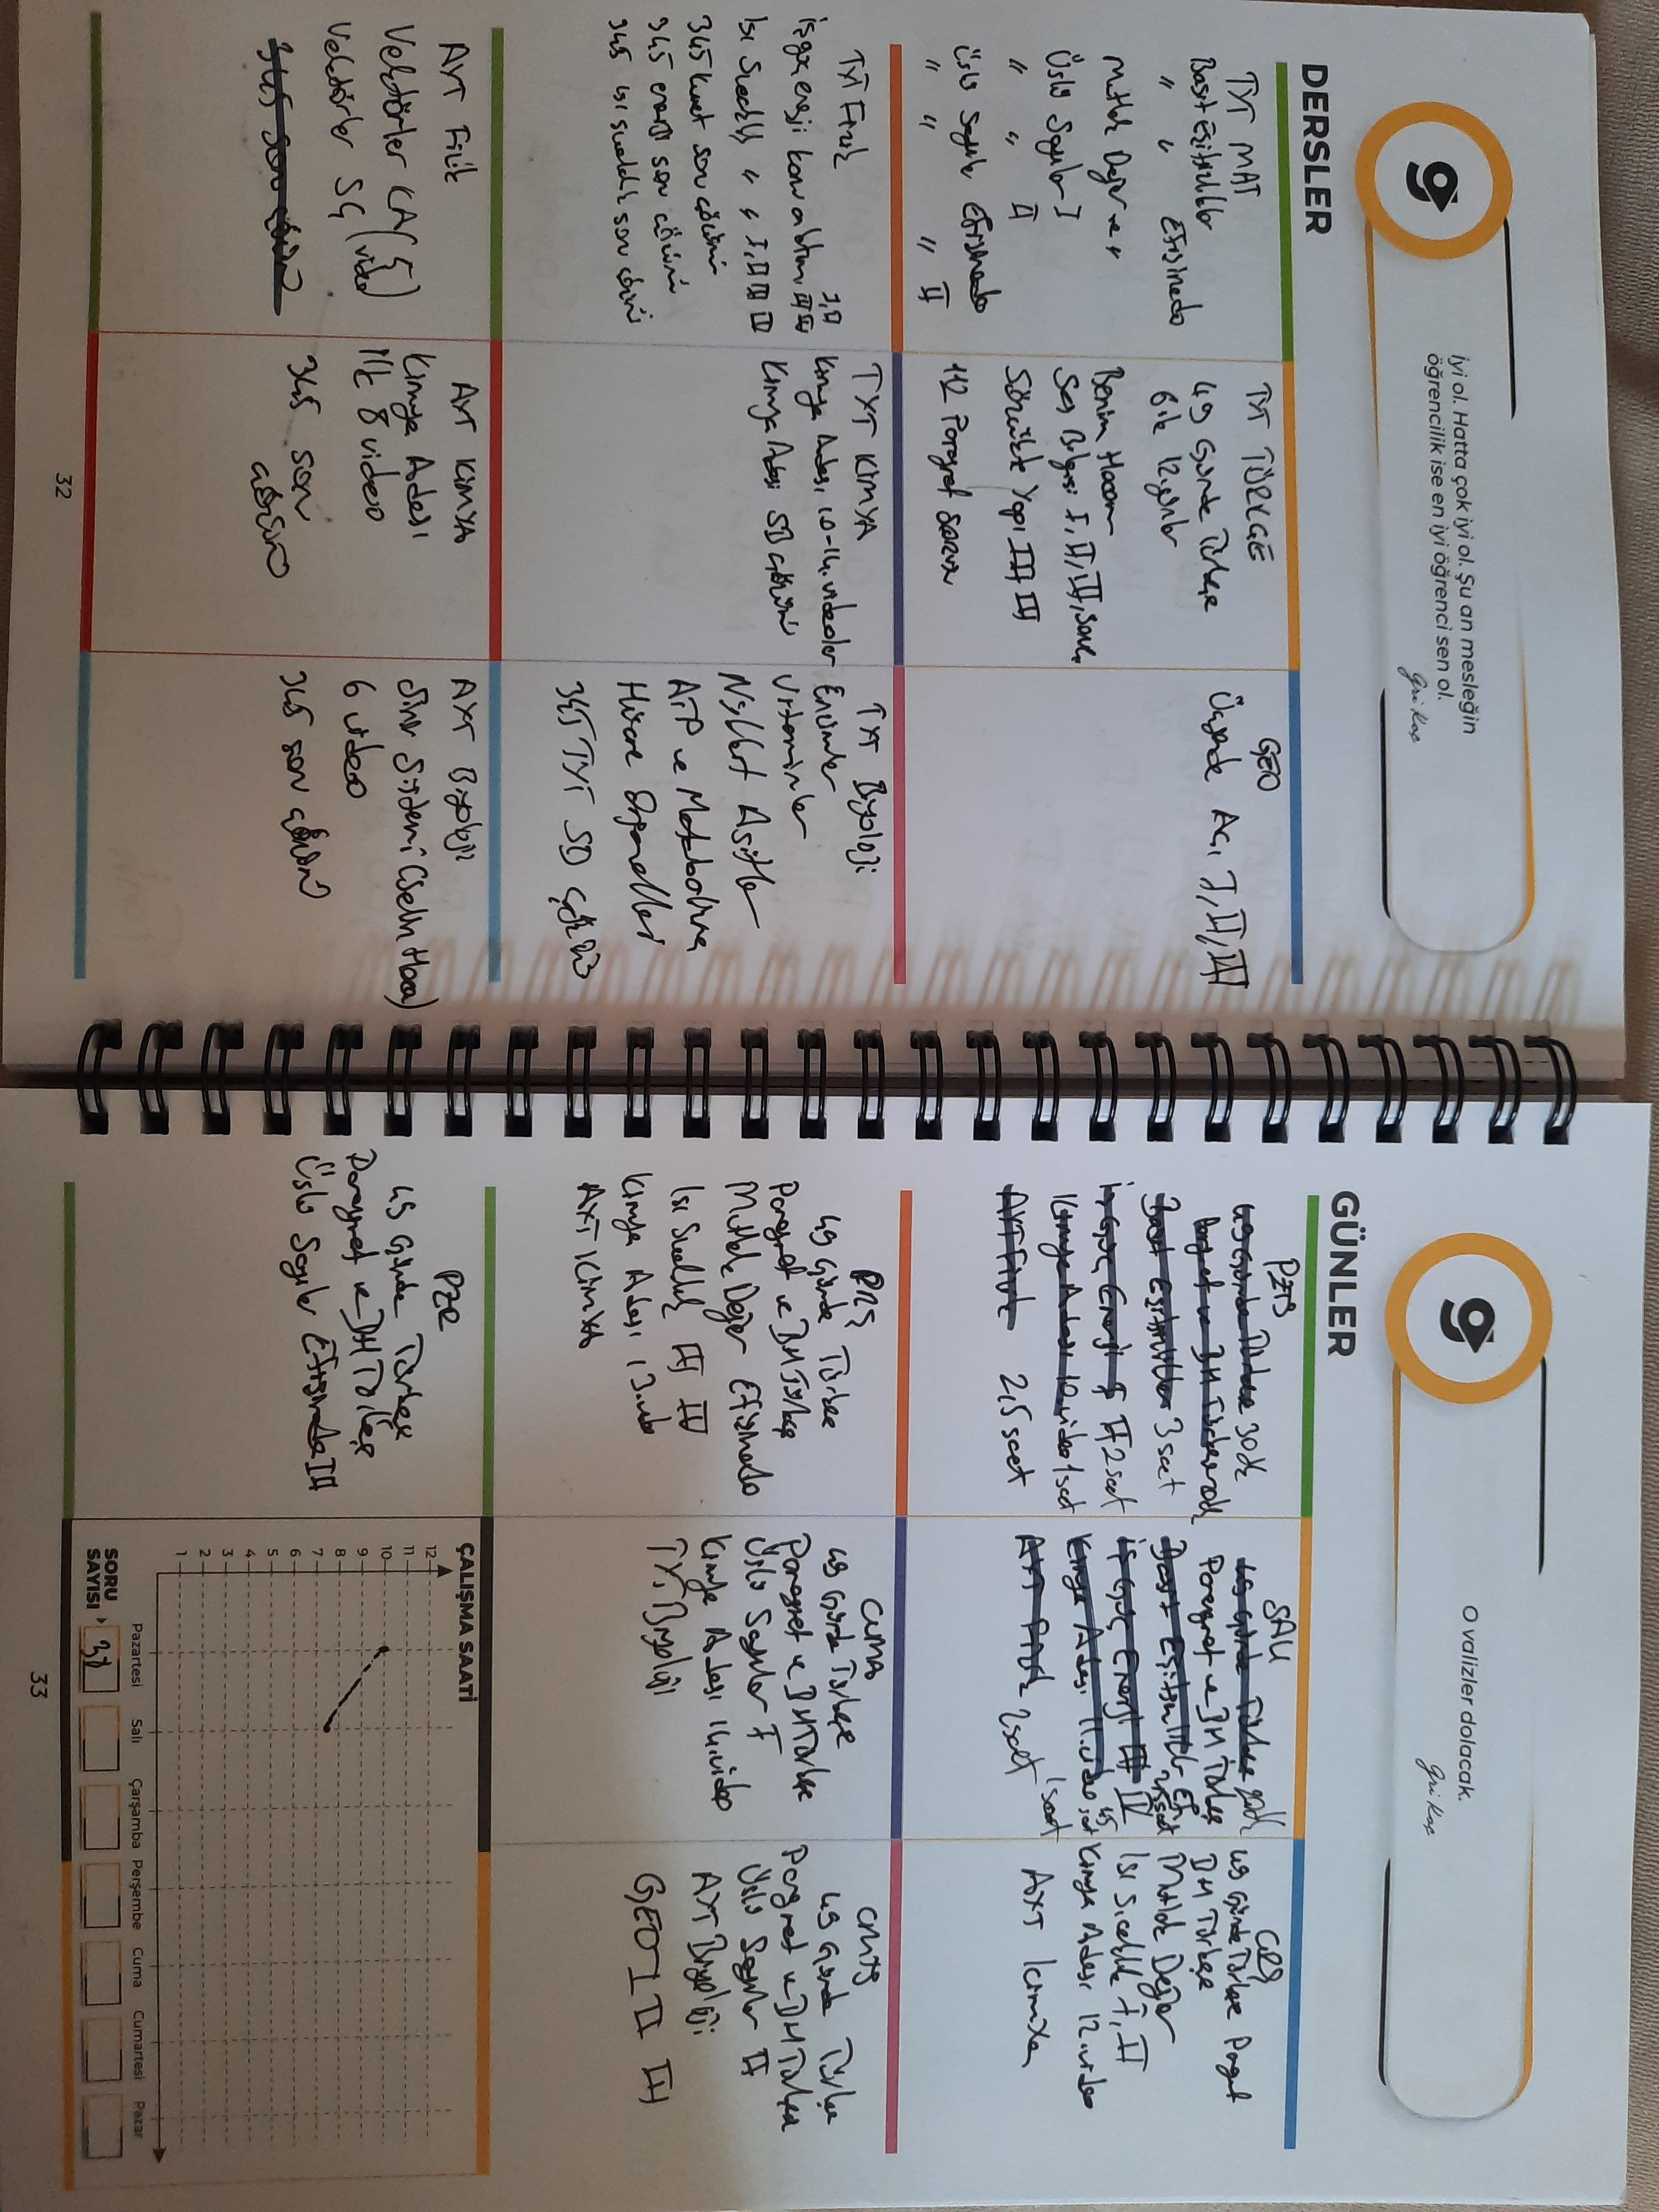 9
İyi ol. Hatta çok iyi ol. Şu an mesleğin
öğrencilik ise en iyi öğrenci sen ol.
DERSLER
TYT MAT
Basit Eşitsizlikler
" " Etkisinde
Mutlak Değer " "
Üslü Sayılar I
" " II
Üslü Sayılar Etkisinde
" " " II
TYT TÜRKÇE
49 Günde Türkçe
6 ile 12. günler
Benim Hocam
Ses Bilgisi I, II, III,
Sözcükte Yapı I II III
112 Paragraf Sorusu
GEO
Üçgende Açı I, II, III
TYT Fizik
İş güç enerji konu anlatımı I, II, III
Isı Sıcaklık " " I, II III IV
345 soru çözümü
345 enerji soru çözümü
345 ısı sıcaklık soru çözümü
TYT KİMYA
Kimya Adası 10-14. videolar
Kimya Adası SB çözümü
TYT Biyoloji
Enzimler
Vitaminler
Nükleit Asitler
ATP ve Metabolizma
Hücre Organelleri
345 TYT SB Çözüm
AYT Fizik
Vektörler KA
Vektörler SÇ (video)
345 soru çözüm
AYT KİMYA
Kimya Adası
ilk 8 video
345 soru
çözüm
AYT Biyoloji
Sinir Sistemi (Selin Hoca)
6 video
345 soru çözüm
32
9
O valizler dolacak.
GÜNLER
PZTS
49 Günde Türkçe 30dk
Paragraf ve BH Türkçe
Basit Eşitsizlikler 3 saat
İş Güç Enerji I II 2 saat
Kimya Adası 10. video 1 saat
AYT Fizik 2,5 saat
SALI
49 Günde Türkçe
Paragraf ve BH Türkçe
Basit Eşitsizlikler
İş Güç Enerji III IV
Kimya Adası 11. video
AYT Fizik 2 saat
ÇRŞ
49 Günde Türkçe Paragraf
BH Türkçe
Mutlak Değer
Isı Sıcaklık I, II
Kimya Adası 12. video
AYT Kimya
PRŞ
49 Günde Türkçe
Paragraf ve BH Türkçe
Mutlak Değer Etkisinde
Isı Sıcaklık III IV
Kimya Adası 13. video
AYT KİMYA
CUMA
49 Günde Türkçe
Paragraf ve BH Türkçe
Üslü Sayılar I
Kimya Adası 14. video
TYT Biyoloji
CMTS
49 Günde Türkçe
Paragraf ve BH Türkçe
Üslü Sayılar II
AYT Biyoloji
GEO I II III
PZR
49 Günde Türkçe
Paragraf ve BH Türkçe
Üslü Sayılar Etkisinde I II
ÇALIŞMA SAATİ
12
11
10
9
8
7
6
5
4
3
2
1
Pazartesi Salı Çarşamba Perşembe Cuma Cumartesi Pazar
SORU
SAYISI
33